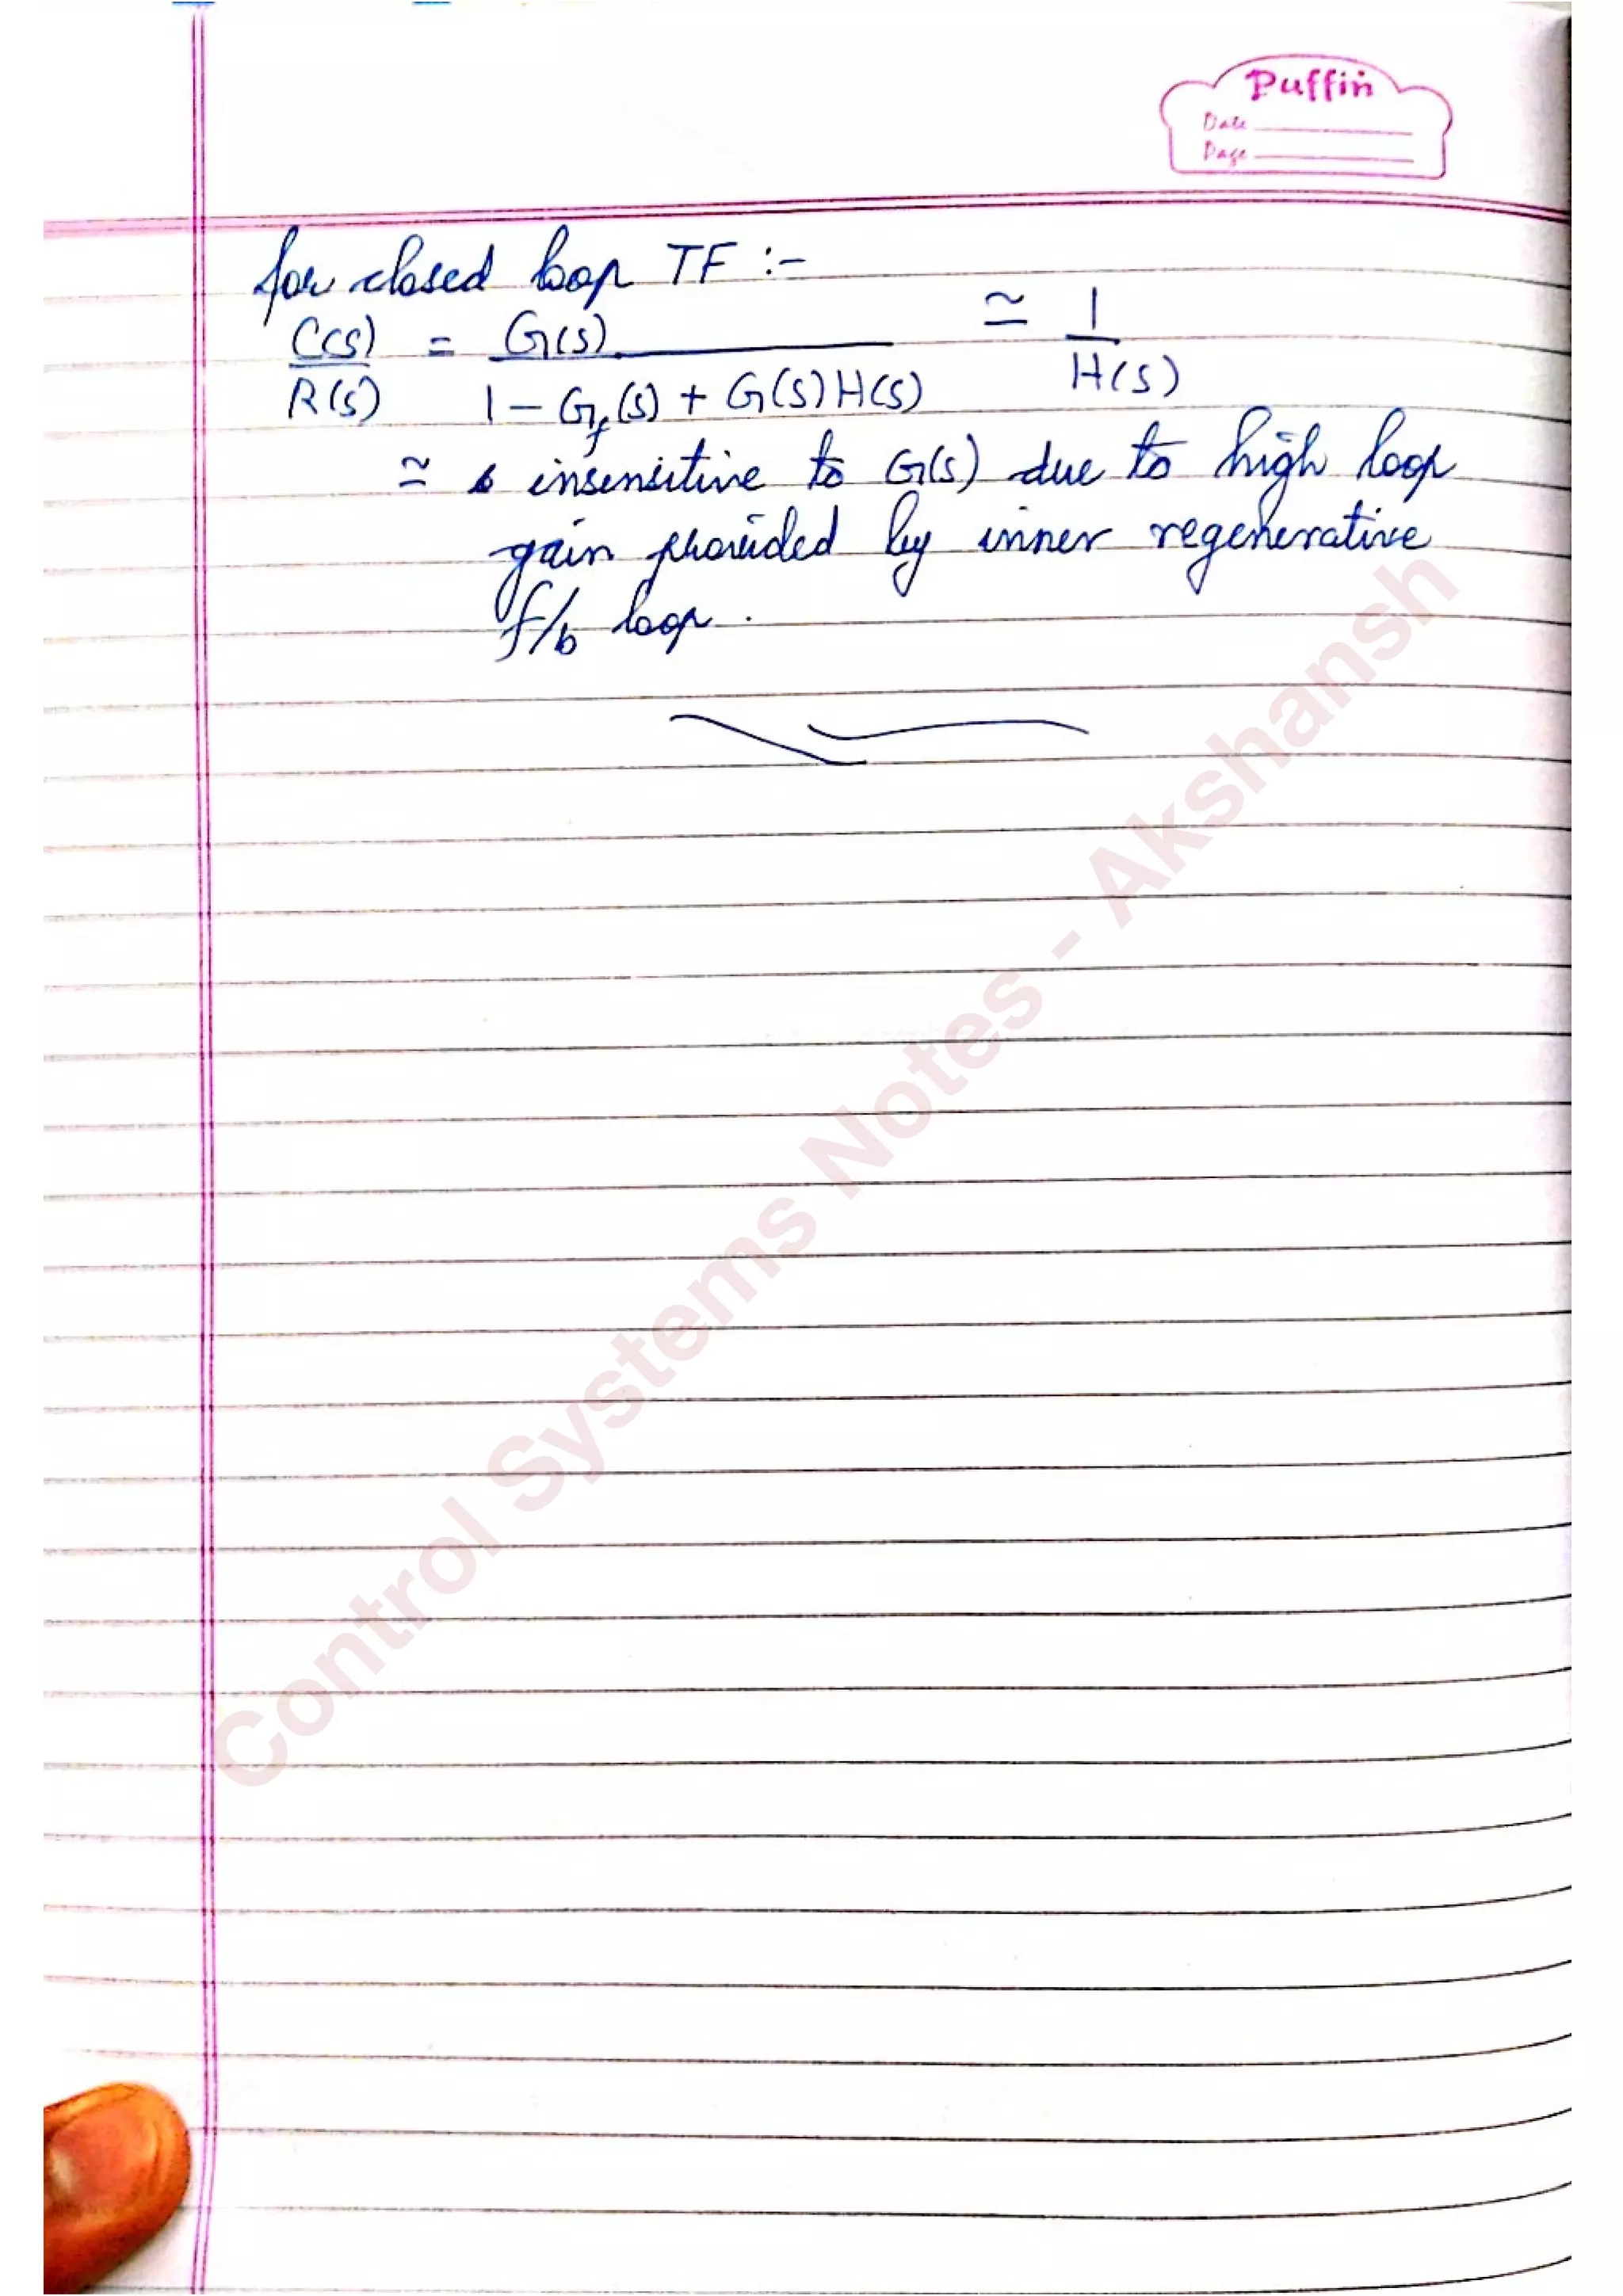 Puffin
Date
Page
for closed loop TF :-
C(s)/R(s) = G(s)/(1 - Gf(s) + G(s)H(s)) ≃ 1/H(s)
≃ insensitive to G(s) due to high loop
gain provided by inner regenerative
f/b loop.
Control Systems Notes - Akshansh